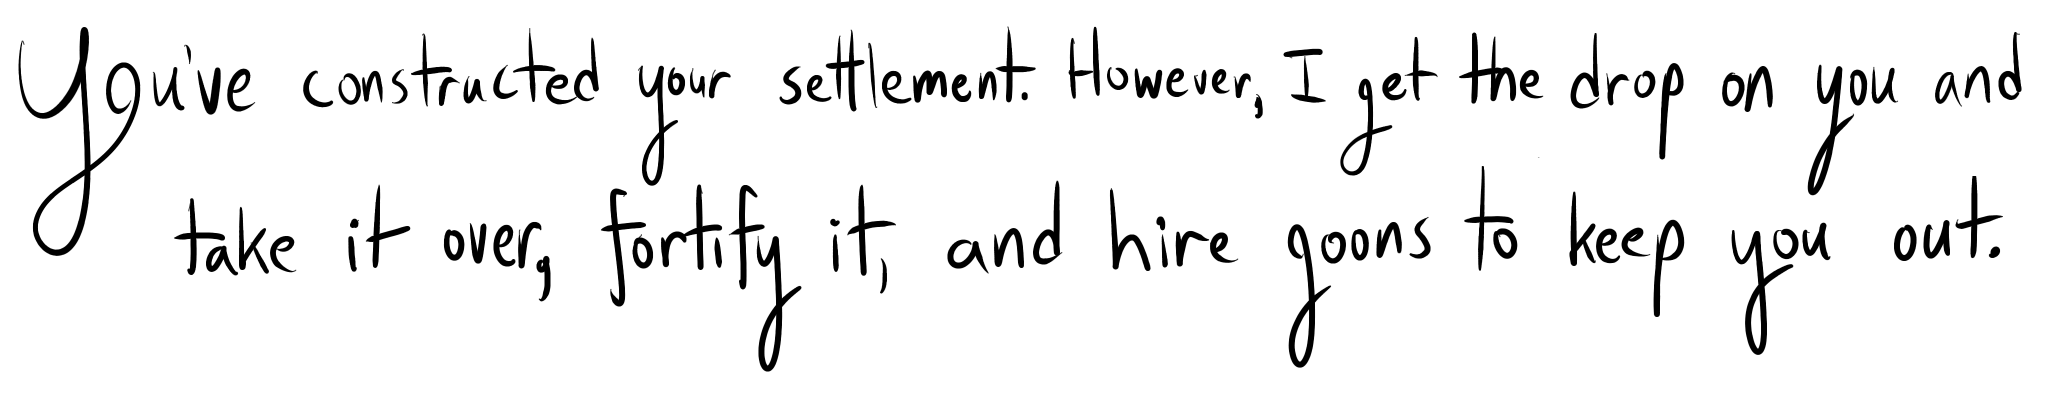 You've constructed your settlement. However, I get the drop on you and
take it over, fortify it, and hire goons to keep you out.